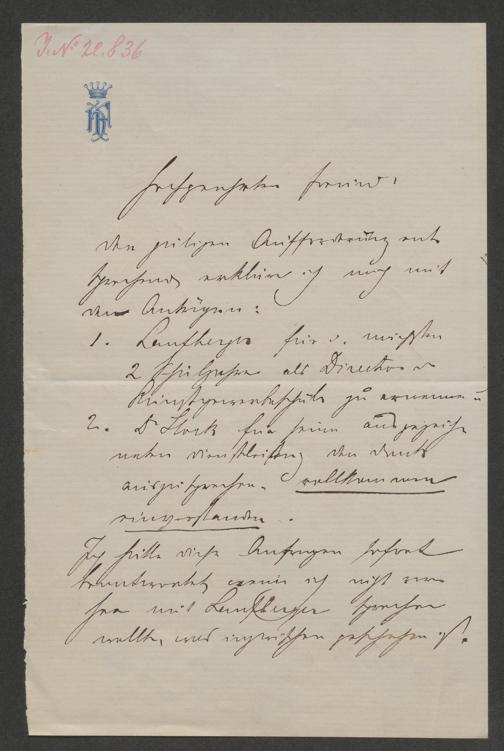 I. No 20.836
Hochgeehrter Freund!
Der gütigen Aufforderung ent
sprechend erkläre ich mich mit
den Anträgen:
1. Laufberger für d. nächsten
2 Schuljahre als Director d
Kunstgewerbeschule zu ernennen u
2. Dr Stock für seine ausgezeich
neten Dienstleistung den Dank
auszusprechen. vollkommen
einverstanden.
Ich hätte diese Anfragen sofort
beantwortet wenn ich nicht vor
her mit Laufberger sprechen
wollte, was inzwischen geschehen ist.